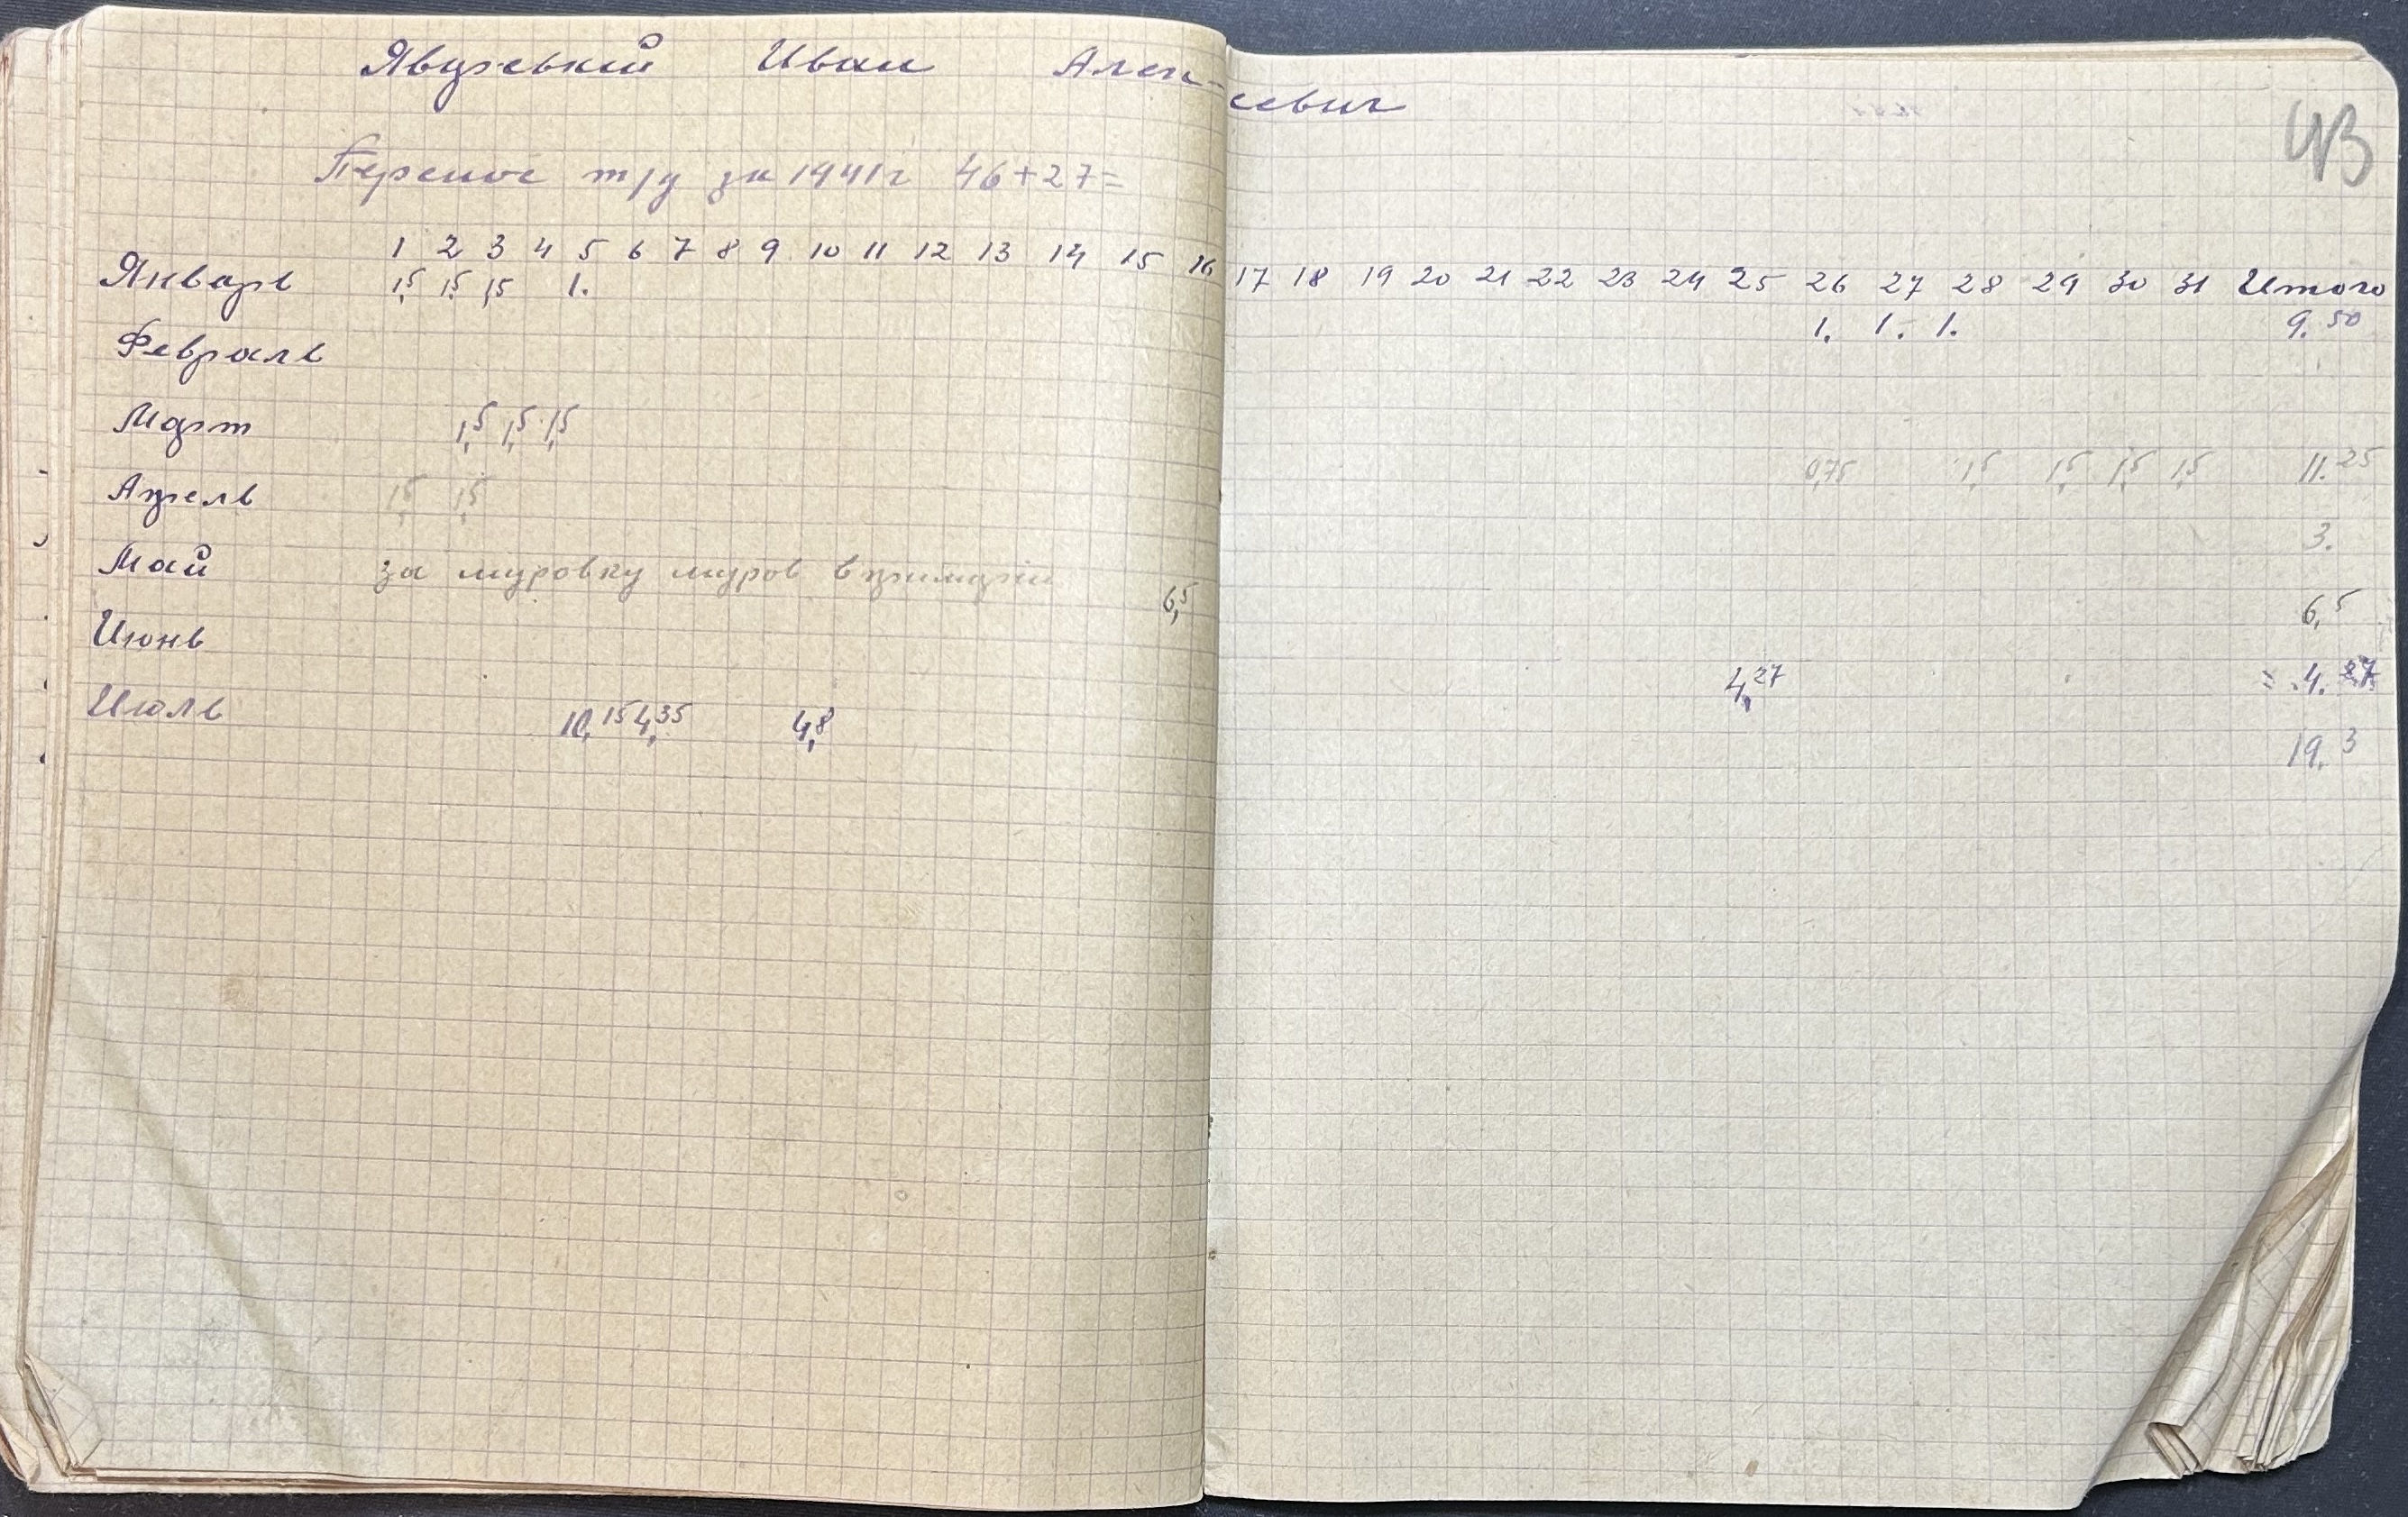 Явурский Иван Алексеевич
43
Перенос т/д за 1941 г 46+27=
1 2 3 4 5 6 7 8 9 10 11 12 13 14 15 16 17 18 19 20 21 22 23 24 25 26 27 28 29 30 31 Итого
Январь 1,5 1,5 1,5 1. 1. 1. 1. 9.50
Февраль
Март 1,5 1,5 1,5 0,75 1,5 1,5 1,5 1,5 11.25
Апрель 1,5 1,5 3.
Май за муровку муров 6,5 6,5
Июнь 4,27 = 4.27
Июль 10,15 4,35 4,8 19.3